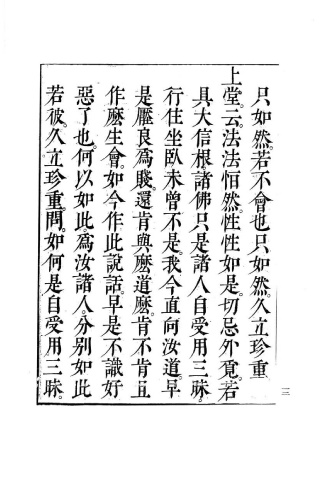 只如然。若不會也只如然。久立珍重
上堂。云。法法恬然。性性如是。切忌外覓。若
具大信根。諸佛只是諸人自受用三昧。
行住坐臥未曾不是。我今直向汝道。早
是壓良爲賤。還肯與麽道麽。肯不肯且
作麽生會。如今作此說話。早是不識好
惡了也。何以如此。爲汝諸人。分別如此
若彼。久立珍重。問。如何是自受用三昧。
三